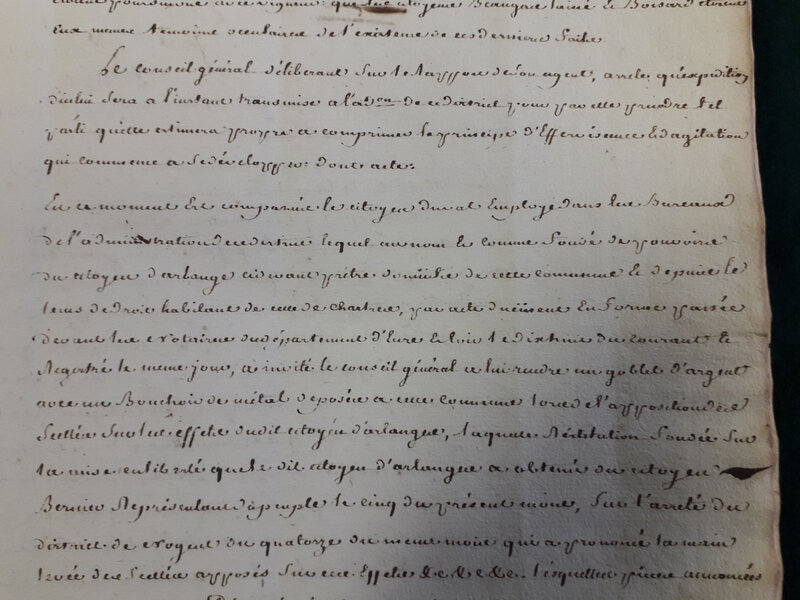 eux meme temoins oculaires de l'existence de ces derniers faits
Le conseil général déliberant sur le rapport de son agent, arrete qu'expedition
d'icelui sera a l'instant transmise a l'adon. de ce district pour par elle prendre tel
parti quelle estimera propre a comprimer le principe d'Effervescence et d'agitation
qui commence a se développer. dont acte.
En ce moment est comparu le citoyen duval Employé dans les Bureaux
de l'administration de ce district lequel au nom et comme fondé de pouvoirs
du citoyen d'arlange ci devant prêtre domicilié de cette commune et depuis le
tems de droit habitant de celle de chartres, par acte duement en forme passée
devant les Notaires du département d'Eure et loir le dixième du courant et
Registré le meme jour, a invité le conseil général a lui rendre un goblet d'argent
avec un Bouchoir de métal deposés a cette commune lors de l'apposition des
Scellés sur les effets dudit citoyen d'arlange, laquelle Réstitution fondée sur
la mise en liberté que le dit citoyen d'arlange a obtenue du citoyen
Bernier Représentant du peuple le cinq du présent mois, sur l'arreté du
district de Nogent du quatorze du meme mois qui a prononcé la main
levée des Scellés apposés sur ces Effets &c &c &c. lesquelles pieces annoncées